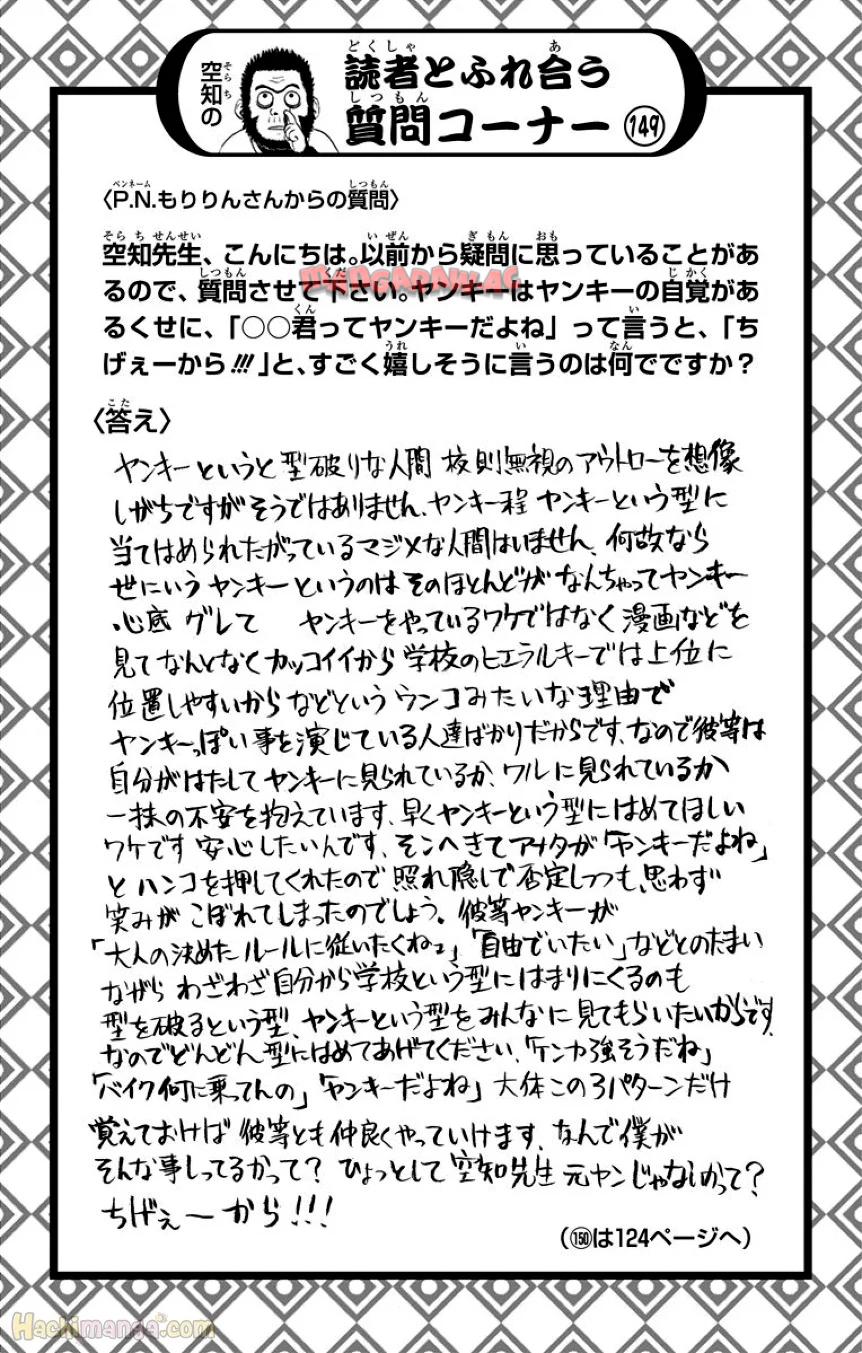 空知の
読者とふれ合う
質問コーナー 149
〈P.N.もりりんさんからの質問〉
空知先生、こんにちは。以前から疑問に思っていることがあ
るので、質問させて下さい。ヤンキーはヤンキーの自覚があ
るくせに、「○○君ってヤンキーだよね」って言うと、「ち
げぇーから!!!」と、すごく嬉しそうに言うのは何でですか？
〈答え〉
ヤンキーというと型破りな人間 校則無視のアウトローを想像
しがちですがそうではありません、ヤンキー程 ヤンキーという型に
当てはめられたがっているマジメな人間はいません、何故なら
世にいうヤンキーというのはそのほとんどがなんちゃってヤンキー
心底 グレて ヤンキーをやっているワケではなく漫画などを
見てなんとなくカッコイイから 学校のヒエラルキーでは上位に
位置しやすいからなどというウンコみたいな理由で
ヤンキーっぽい事を演じている人達ばかりだからです、なので彼等は
自分がはたしてヤンキーに見られているか、ワルに見られているか
一抹の不安を抱えています、早くヤンキーという型にはめてほしい
ワケです 安心したいんです、そこへきてアナタが「ヤンキーだよね」
とハンコを押してくれたので 照れ隠しで否定しつつも、思わず
笑みがこぼれてしまったのでしょう。彼等ヤンキーが
「大人の決めたルールに従いたくねェ」「自由でいたい」などとのたまい
ながら わざわざ自分から学校という型にはまりにくるのも
型を破るという型、ヤンキーという型をみんなに見てもらいたいからです
なのでどんどん型にはめてあげてください、「ケンカ強そうだね」
「バイク何に乗ってんの」「ヤンキーだよね」大体この3パターンだけ
覚えておけば 彼等とも仲良くやっていけます、なんで僕が
そんな事しってるかって？ ひょっとして空知先生 元ヤンじゃないかって？
ちげぇーから!!!
(150は124ページへ)
Hachimanga.com